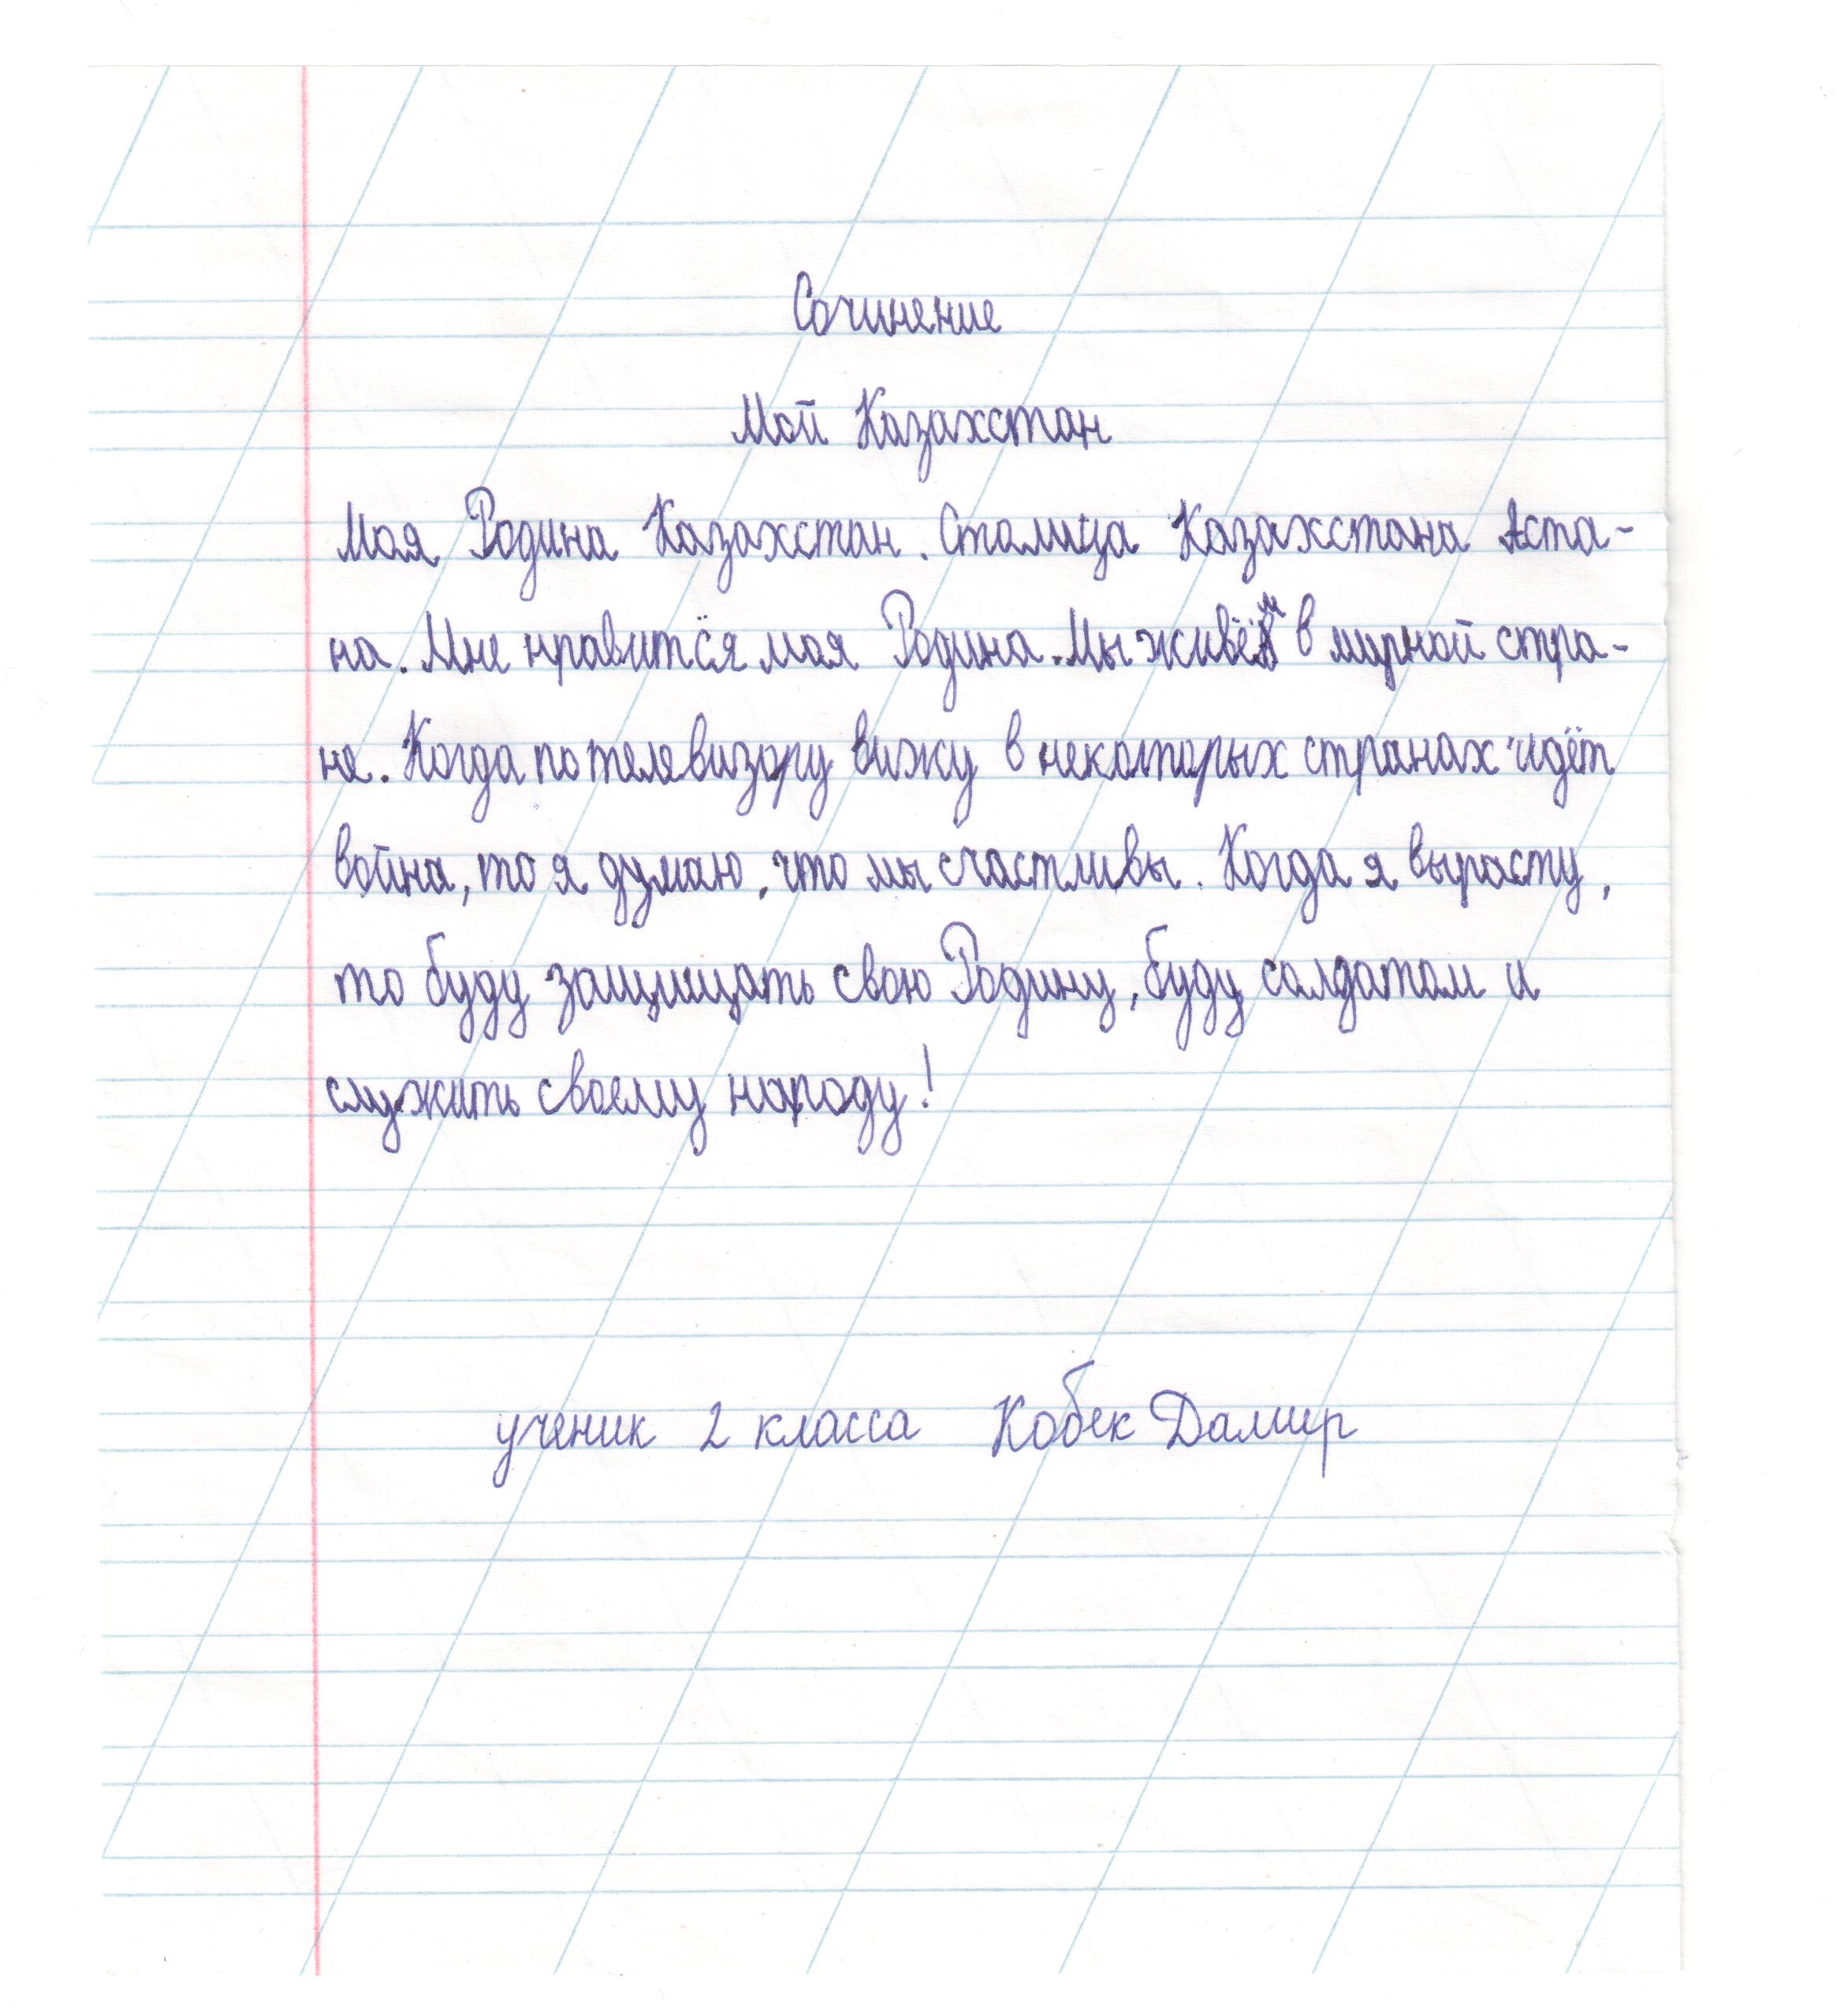 Сочинение
Мой Казахстан
Моя Родина Казахстан. Столица Казахстана Аста-
на. Мне нравится моя Родина. Мы живём в мирной стра-
не. Когда по телевизору вижу в некоторых странах идёт
война, то я думаю, что мы счастливы. Когда я вырасту,
то буду защищать свою Родину, буду солдатом и
служить своему народу!
ученик 2 класса Кобек Дамир